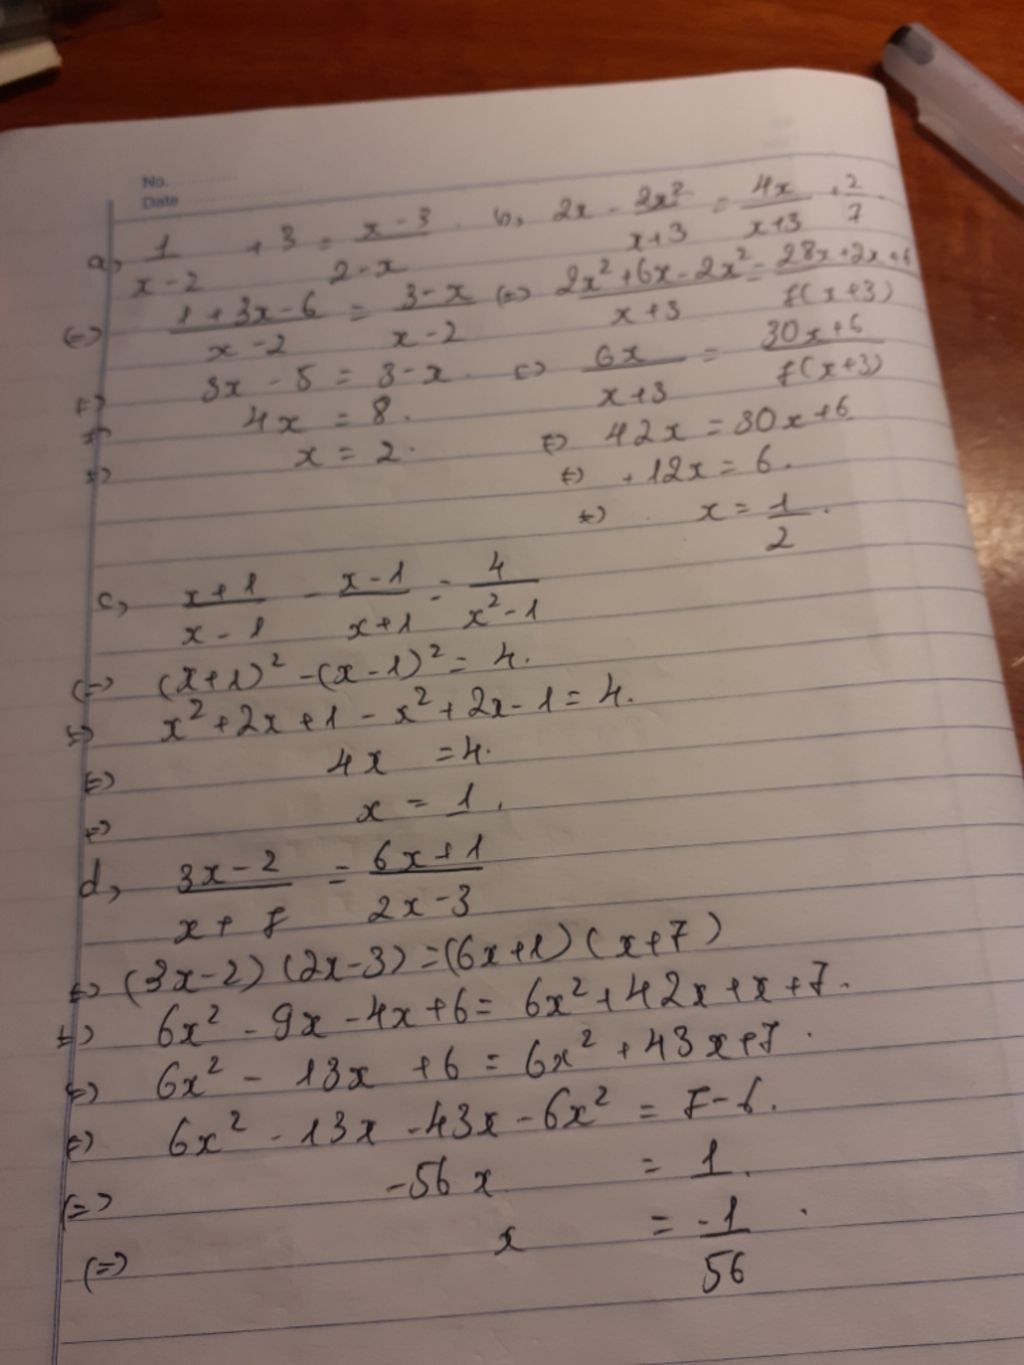 No.
Date
a, 1/(x-2) + 3 = (x-3)/(2-x). b, 2x - 2x²/(x+3) = 4x/(x+3) + 2/7.
(=) (1+3x-6)/(x-2) = (3-x)/(x-2) (=) (2x²+6x-2x²)/(x+3) = (28x+2x+6)/(7(x+3))
(=) 3x - 5 = 3-x. (=) 6x/(x+3) = (30x+6)/(7(x+3))
(=) 4x = 8. (=) 42x = 30x+6
(=) x = 2. (=) +12x = 6.
(=) x = 1/2.
c, (x+1)/(x-1) - (x-1)/(x+1) = 4/(x²-1)
(=) (x+1)² - (x-1)² = 4.
(=) x²+2x+1 - x²+2x-1 = 4.
(=) 4x = 4.
(=) x = 1.
d, (3x-2)/(x+7) = (6x+1)/(2x-3)
(=) (3x-2)(2x-3) = (6x+1)(x+7)
(=) 6x² - 9x - 4x + 6 = 6x² + 42x + x + 7.
(=) 6x² - 13x + 6 = 6x² + 43x + 7.
(=) 6x² - 13x - 43x - 6x² = 7-6.
(=) -56x = 1.
(=) x = -1/56.